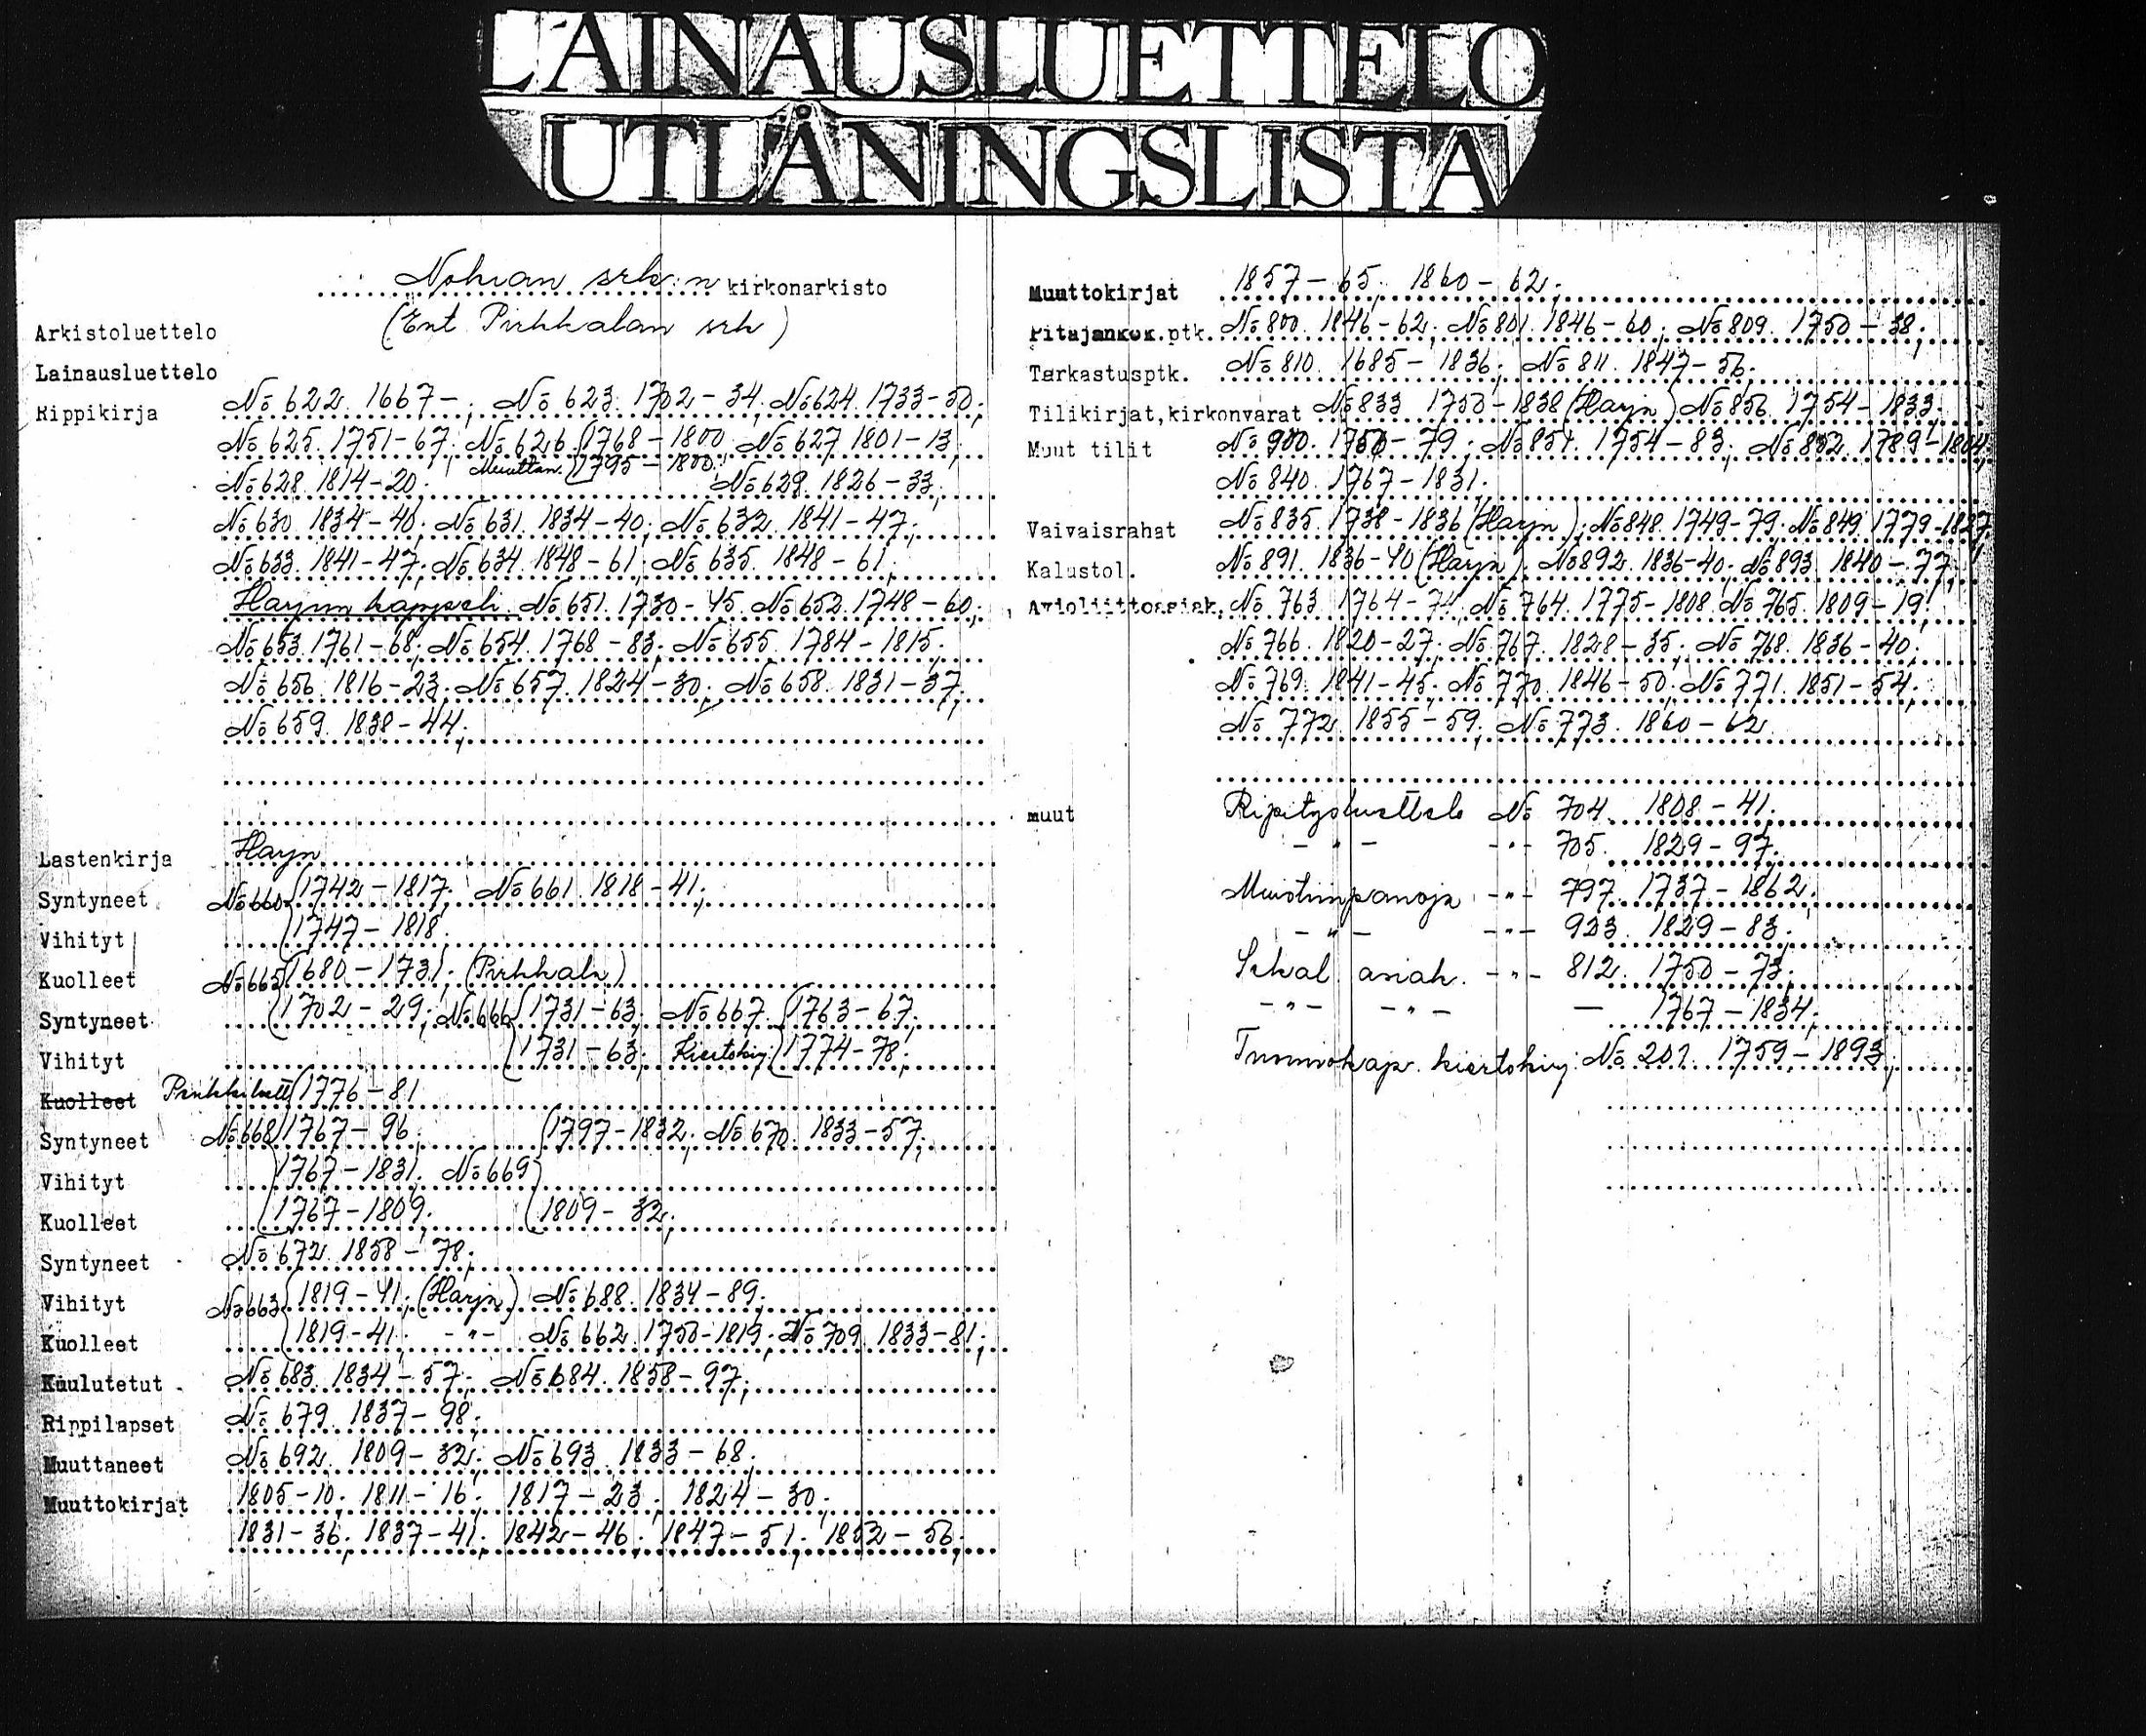 LAINAUSLUETTELO
UTLÅNINGSLISTA
Nokian srk:n kirkonarkisto
Arkistoluettelo (Ent Pirkkalan srk)
Lainausluettelo
Rippikirja No 622. 1667-; No 623. 1702-34; No 624. 1733-50;
No 625. 1751-67; No 626. (1768-1800 No 627 1801-13;
No 628. 1814-20; Muuttan. (1795-1800. No 629. 1826-33;
No 630 1834-40; No 631. 1834-40; No 632. 1841-47;
No 633. 1841-47; No 634. 1848-61; No 635. 1848-61;
Harjun kappseli. No 651. 1730-45. No 652. 1748-60;
No 653. 1761-68; No 654. 1768-83; No 655. 1784-1815;
No 656. 1816-23; No 657. 1824-30; No 658. 1831-37;
No 659. 1838-44;
Lastenkirja Harju
Syntyneet No 660 (1742-1817; No 661. 1818-41;
Vihityt (1747-1818.
Kuolleet No 665 (1680-1731. (Pirkkala)
Syntyneet (1702-29; No 666 (1731-63; No 667. (1763-67;
Vihityt (1731-63; Kiertokirj. (1774-78;
Kuolleet (1776-81
Syntyneet No 668 (1767-96 (1797-1832; No 670. 1833-57;
Vihityt 1767-1831. No 669
Kuolleet (1767-1809. (1809-32;
Syntyneet No 672. 1858-78;
Vihityt No 663 (1819-41; (Harju) No 688. 1834-89;
Kuolleet (1819-41. -"- No 662. 1750-1819; No 709. 1833-81;
Kuulutetut No 683. 1834-57; No 684. 1858-97;
Rippilapset No 679. 1837-98;
Muuttaneet No 692. 1809-32; No 693. 1833-68;
Muuttokirjat 1805-10; 1811-16; 1817-23; 1824-30;
1831-36; 1837-41; 1842-46; 1847-51; 1852-56;
Muuttokirjat 1857-65; 1860-62;
Pitäjänkok.ptk. No 800. 1846-62; No 801. 1846-60; No 809. 1750-38;
Tarkastusptk. No 810. 1685-1836; No 811. 1847-56.
Tilikirjat,kirkonvarat No 833 1750-1838 (Harju) No 856. 1754-1833.
Muut tilit No 900. 1750-79; No 851. 1754-83; No 852. 1789-1804;
No 840. 1767-1831.
Vaivaisrahat No 835. 1738-1836 (Harju); No 848. 1749-79. No 849. 1779-1827
Kalustol. No 891. 1836-40 (Harju). No 892. 1836-40. No 893. 1840-77;
Avioliittoasiak. No 763. 1764-74; No 764. 1775-1808. No 765. 1809-19.
No 766. 1820-27; No 767. 1828-35; No 768. 1836-40;
No 769. 1841-45; No 770. 1846-50; No 771. 1851-54;
No 772. 1855-59; No 773. 1860-62
muut Ripitysluettelo No 704. 1808-41.
-"- -"- 705. 1829-97.
Muistiinpanoja -"- 797. 1737-1862.
-"- -"- 923. 1829-83;
Sekal. asiak. -"- 812. 1750-73;
-"- -"- - 1767-1834;
Tuomiokap. kiertokirj. No 201. 1759-1893;